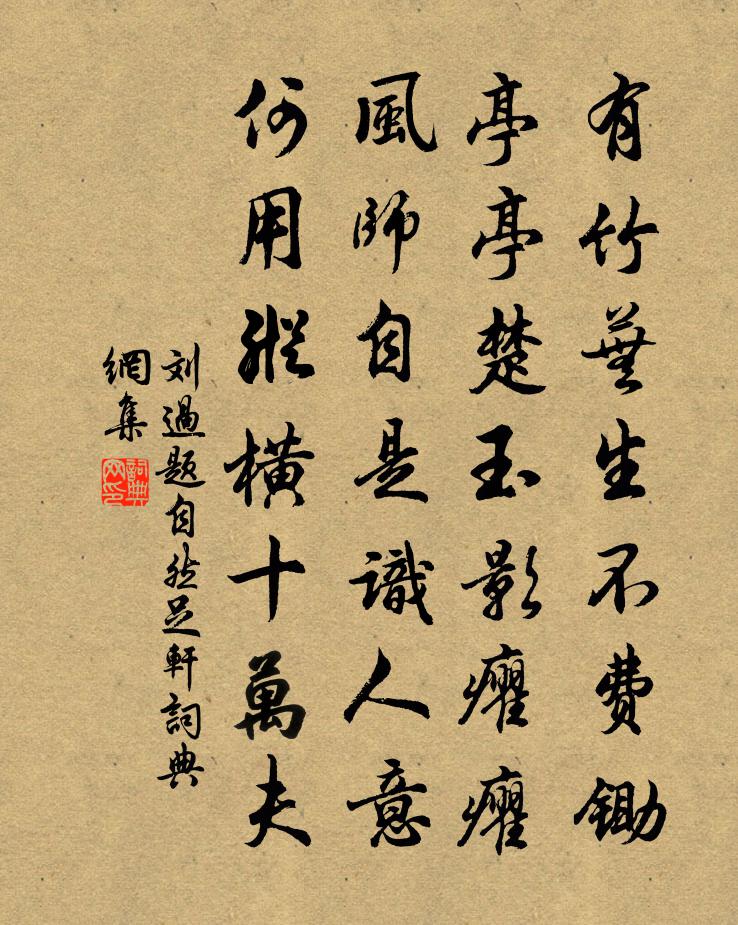 有竹蕪生不費鋤
亭亭楚玉影癯癯
風師自是識人意
何用縱橫十萬夫
刘過題自然足軒詞典
網集
詞典網印